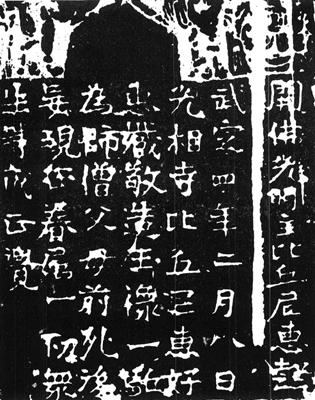 開佛光明主比丘尼惠
武定四年二月八日
光相寺比丘尼惠好
惠藏敬造玉像一軀
為師僧父母前死後
現在眷屬一切眾
生等成正覺